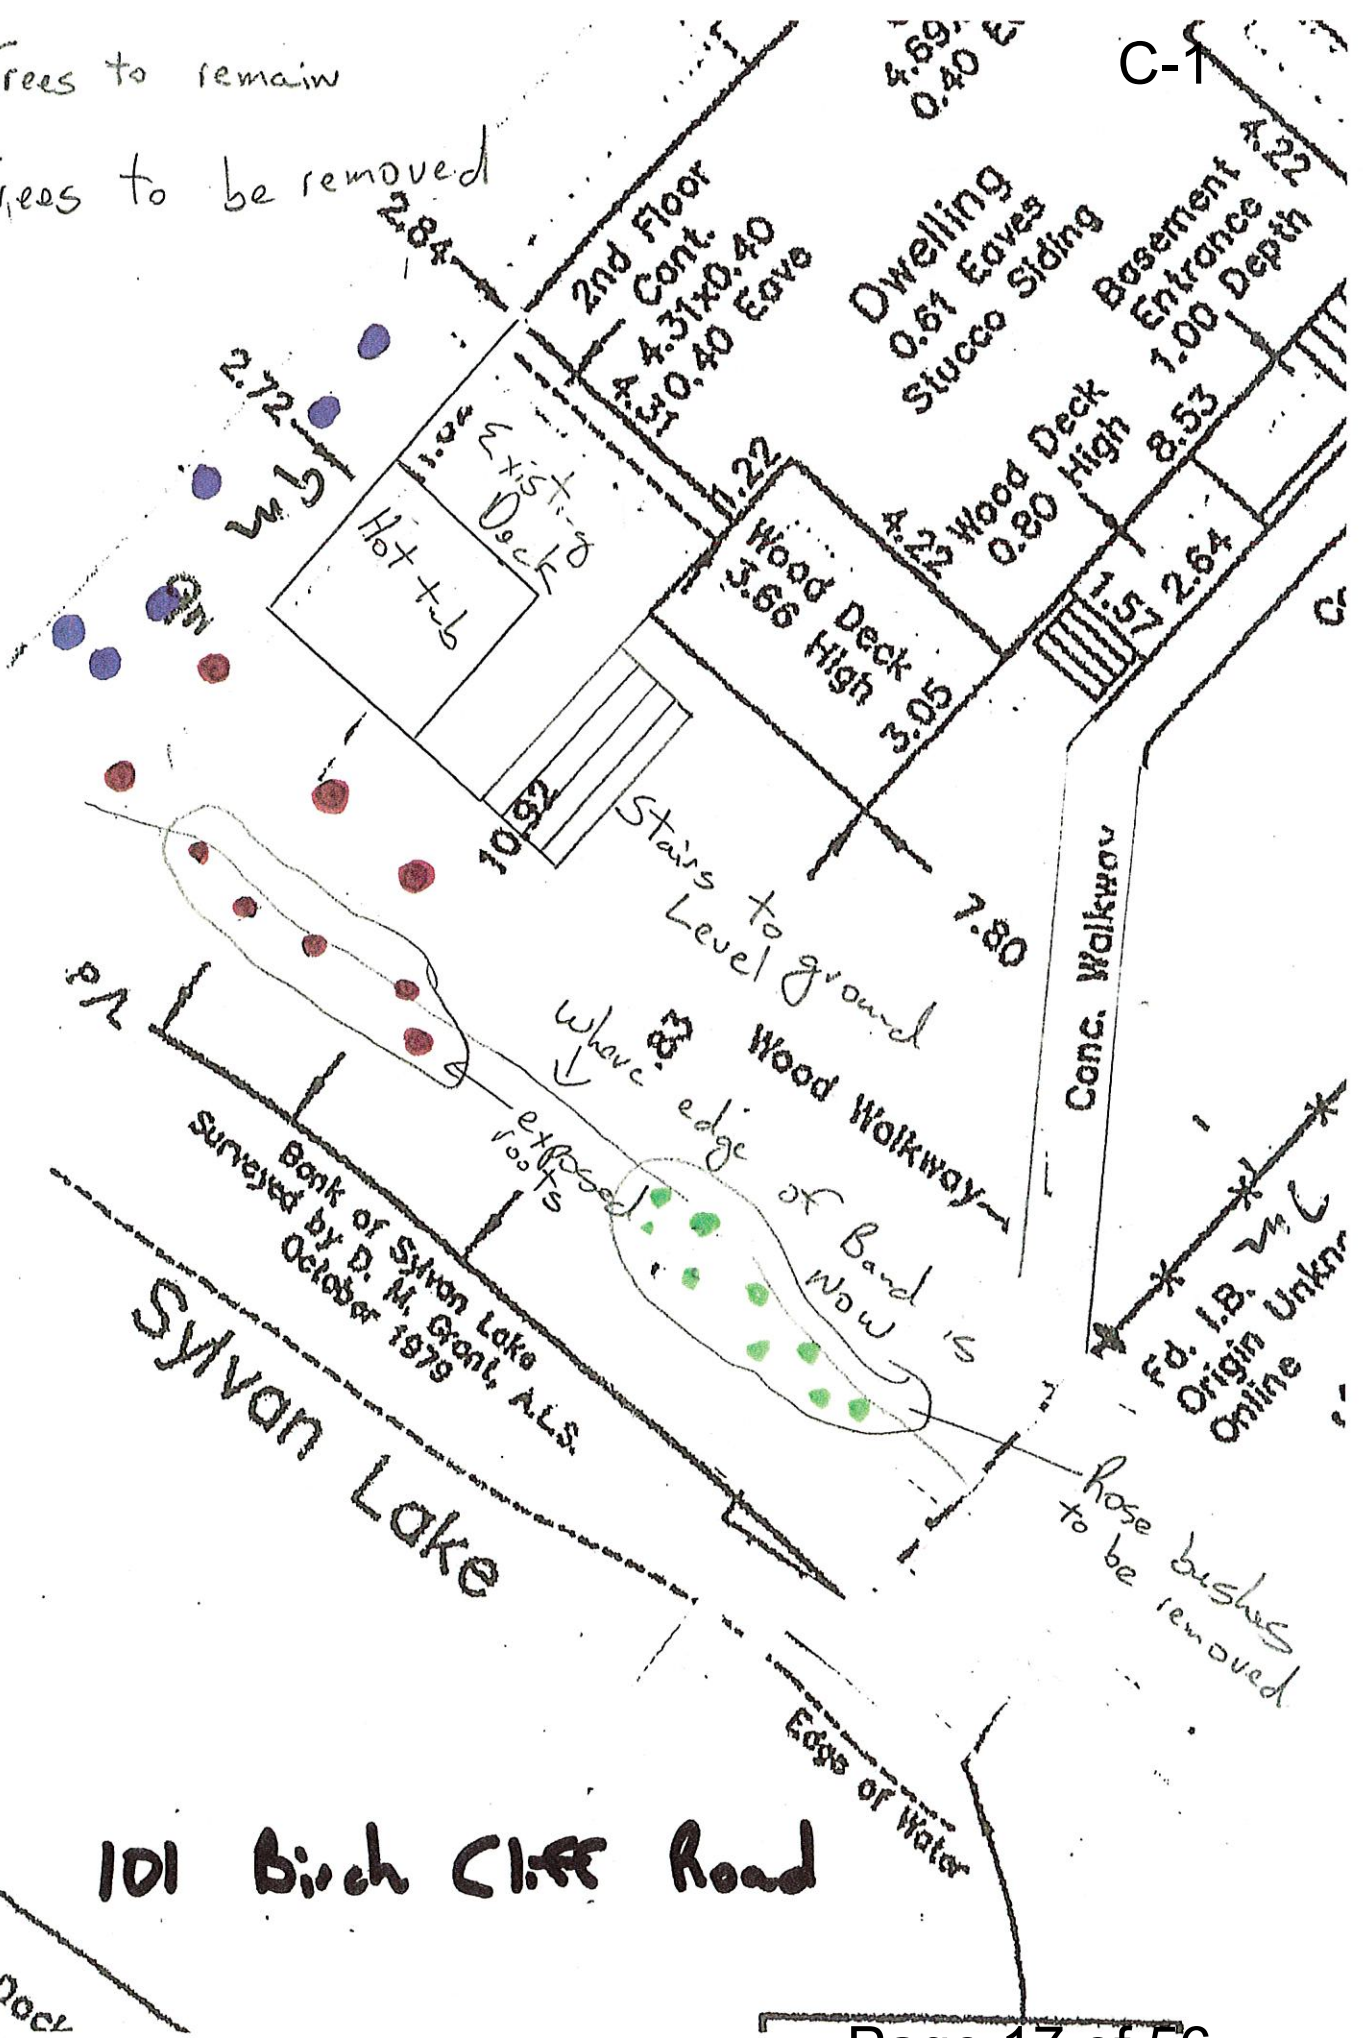 C-1
rees to remain
rees to be removed
4.69
0.40 E
4.22
2.84
2nd Floor
Cant.
4.31x0.40
0.40 Eave
4.31
Dwelling
0.61 Eaves
Stucco Siding
Basement
Entrance
1.00 Depth
2.72
1.04
Existing
Deck
Hot tub
1.22
4.22
Wood Deck
0.80 High
8.53
Wood Deck
3.66
High
3.05
1.57
2.64
10.92
Stairs to ground
Level
7.80
Conc. Walkway
P/L
Wood Walkway
Where edge of Band is
Now
exposed
roots
Bank of Sylvan Lake
Surveyed by D. M. Grant, A.L.S.
October 1979
Sylvan Lake
Fd. I.B.
Origin Unkn
Online
Rose bushes
to be removed
Edge of Water
101 Birch Cliff Road
Dock
Page 17 of 56